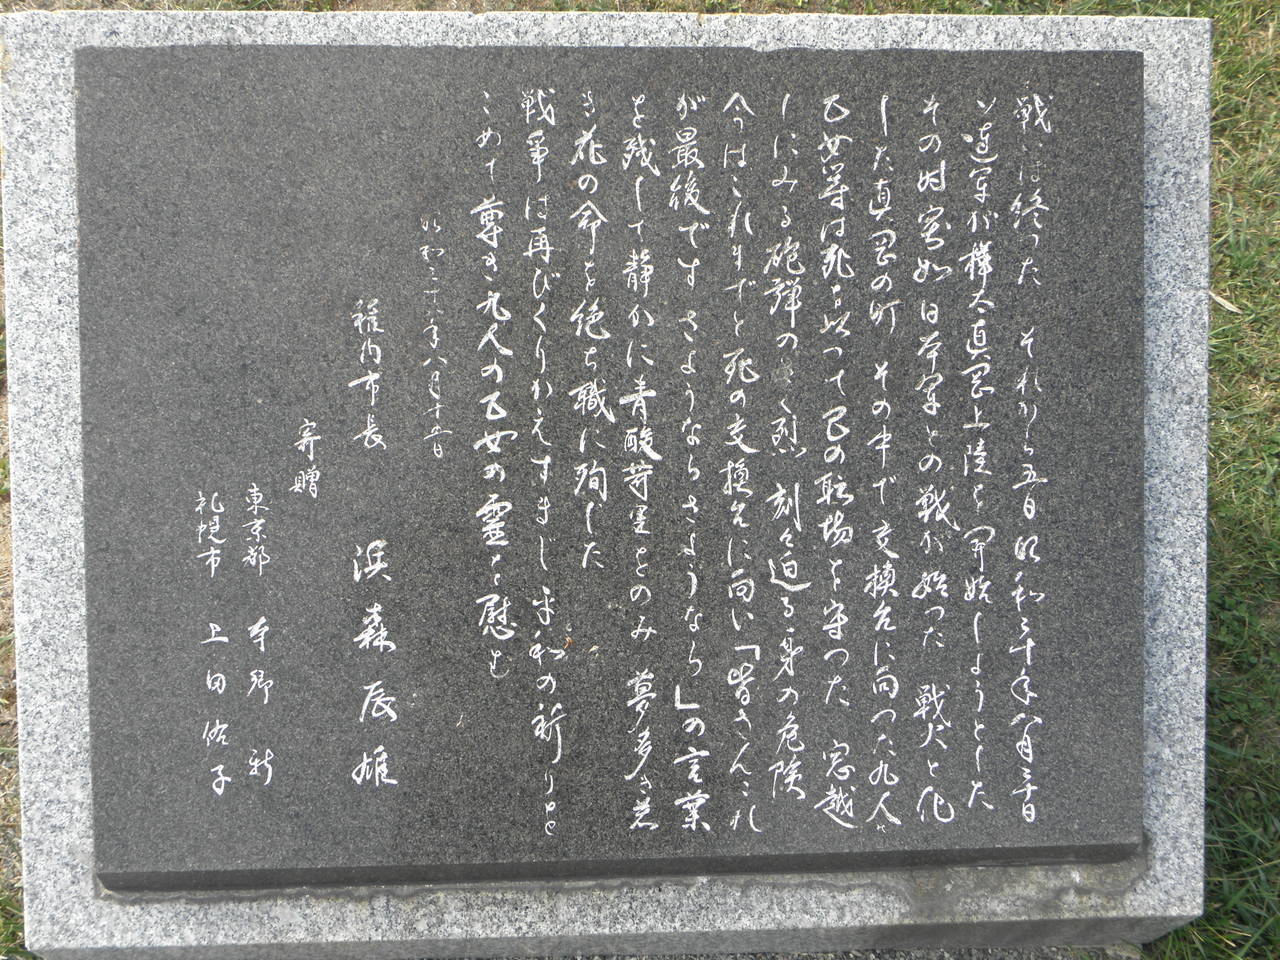 戦いは終った　それから五日　昭和二十年八月二十日
ソ連軍が樺太真岡上陸を開始しようとした
その時突如日本軍との戦が始った　戦火と化
した真岡の町　その中で交換台に向った九人の
乙女等は死を以って己の職場を守った　窓越
しにみる砲弾のさく烈　刻々迫る身の危険
今はこれまでと死の交換台に向い「皆さんこれ
が最後です　さようならさようなら」の言葉
を残して静かに青酸苛里をのみ　夢多き若
き花の命を絶ち職に殉じた
戦争は再びくりかえすまじ　平和の祈りを
こめて尊き九人の乙女の霊を慰む
昭和三十八年八月十五日
稚内市長　浜森辰雄
寄贈
東京都　本郷　新
札幌市　上田佑子